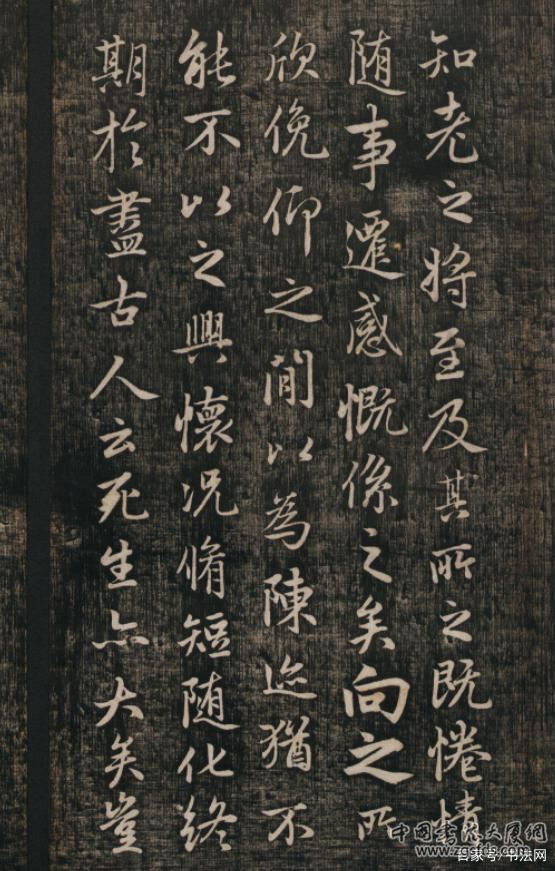 知老之將至及其所之既惓情
随事遷感慨係之矣向之所
欣俛仰之閒以為陳迹猶不
能不以之興懷况脩短随化終
期於盡古人云死生亦大矣豈
中國書法大厦網
www.zgsfds.com
百家号/书法网